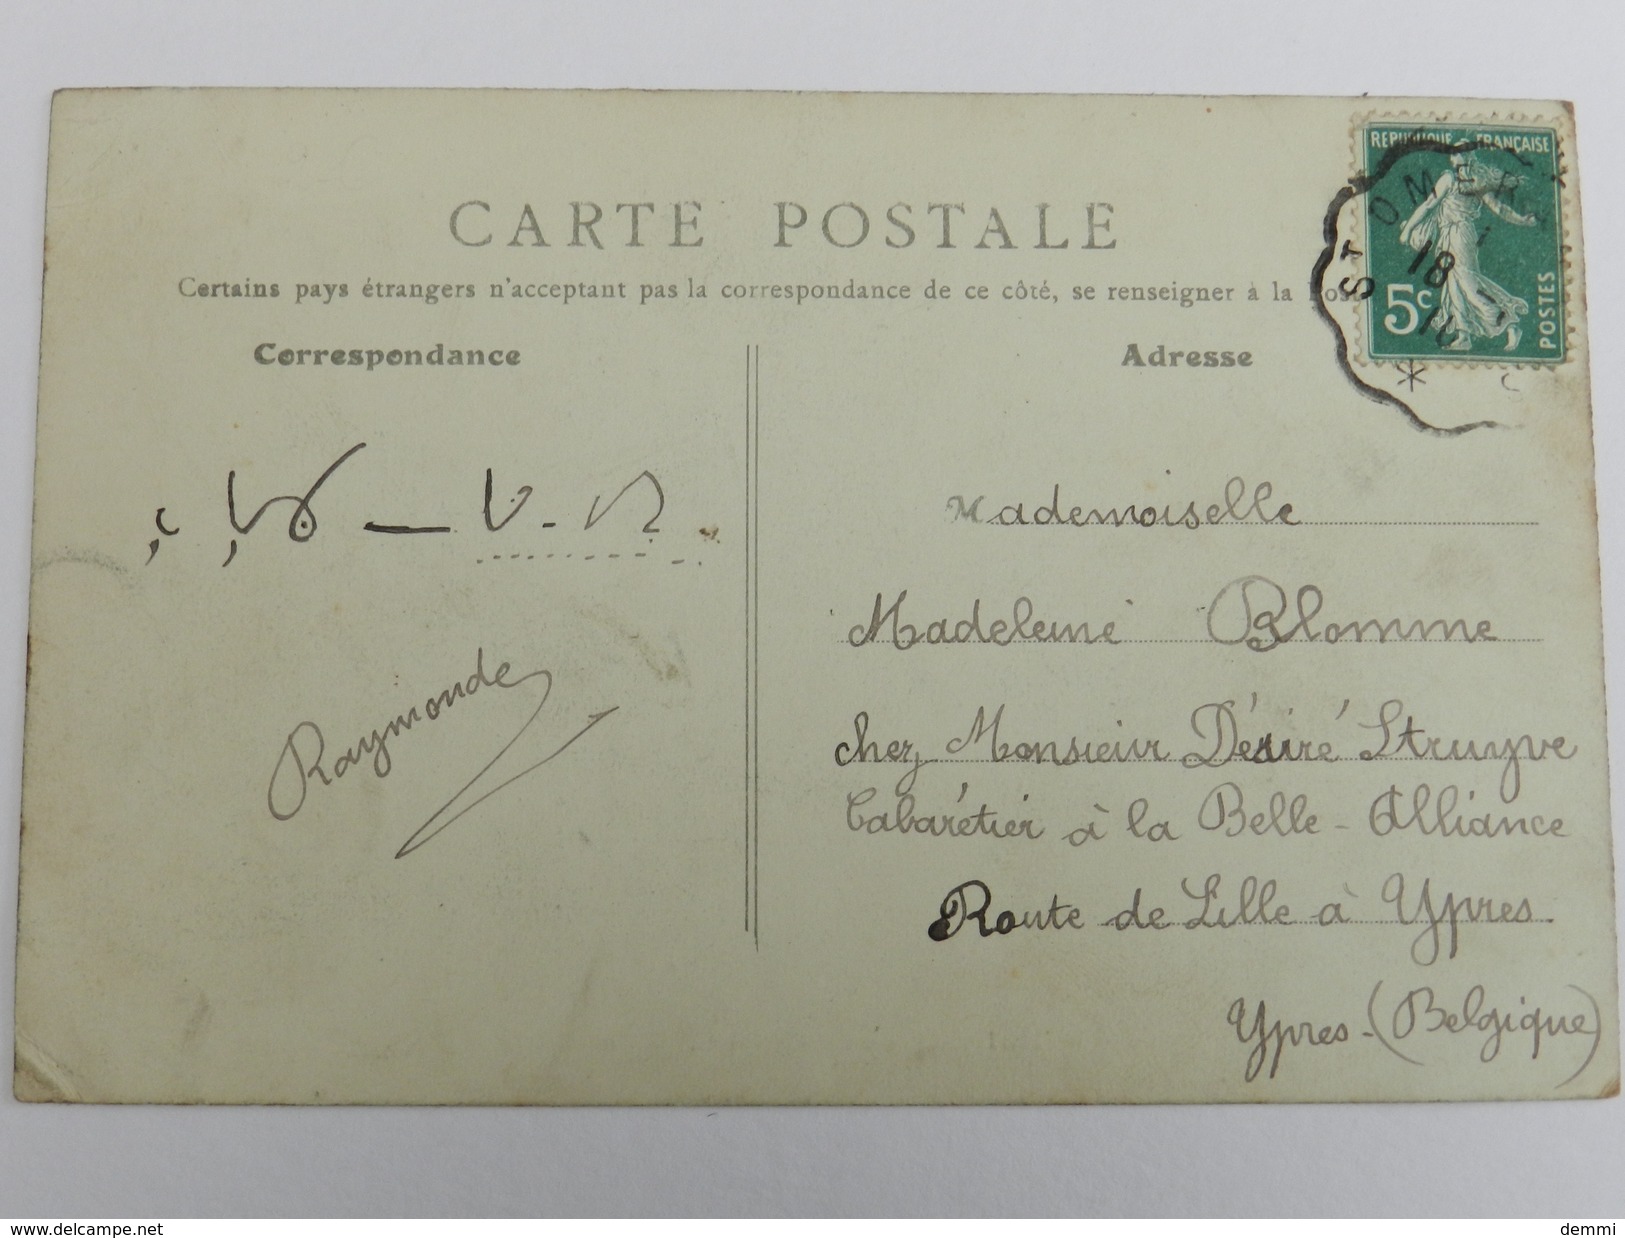 CARTE POSTALE
Certains pays étrangers n'acceptant pas la correspondance de ce côté, se renseigner à la
Correspondance
Raymonde
Adresse
REPUBLIQUE FRANÇAISE
5c
POSTES
ST OMER
18
Mademoiselle
Madeleine Blomme
chez Monsieur Désiré Struyve
Cabarétier à la Belle-Alliance
Route de Lille à Ypres.
Ypres-(Belgique)
www.delcampe.net
demmi